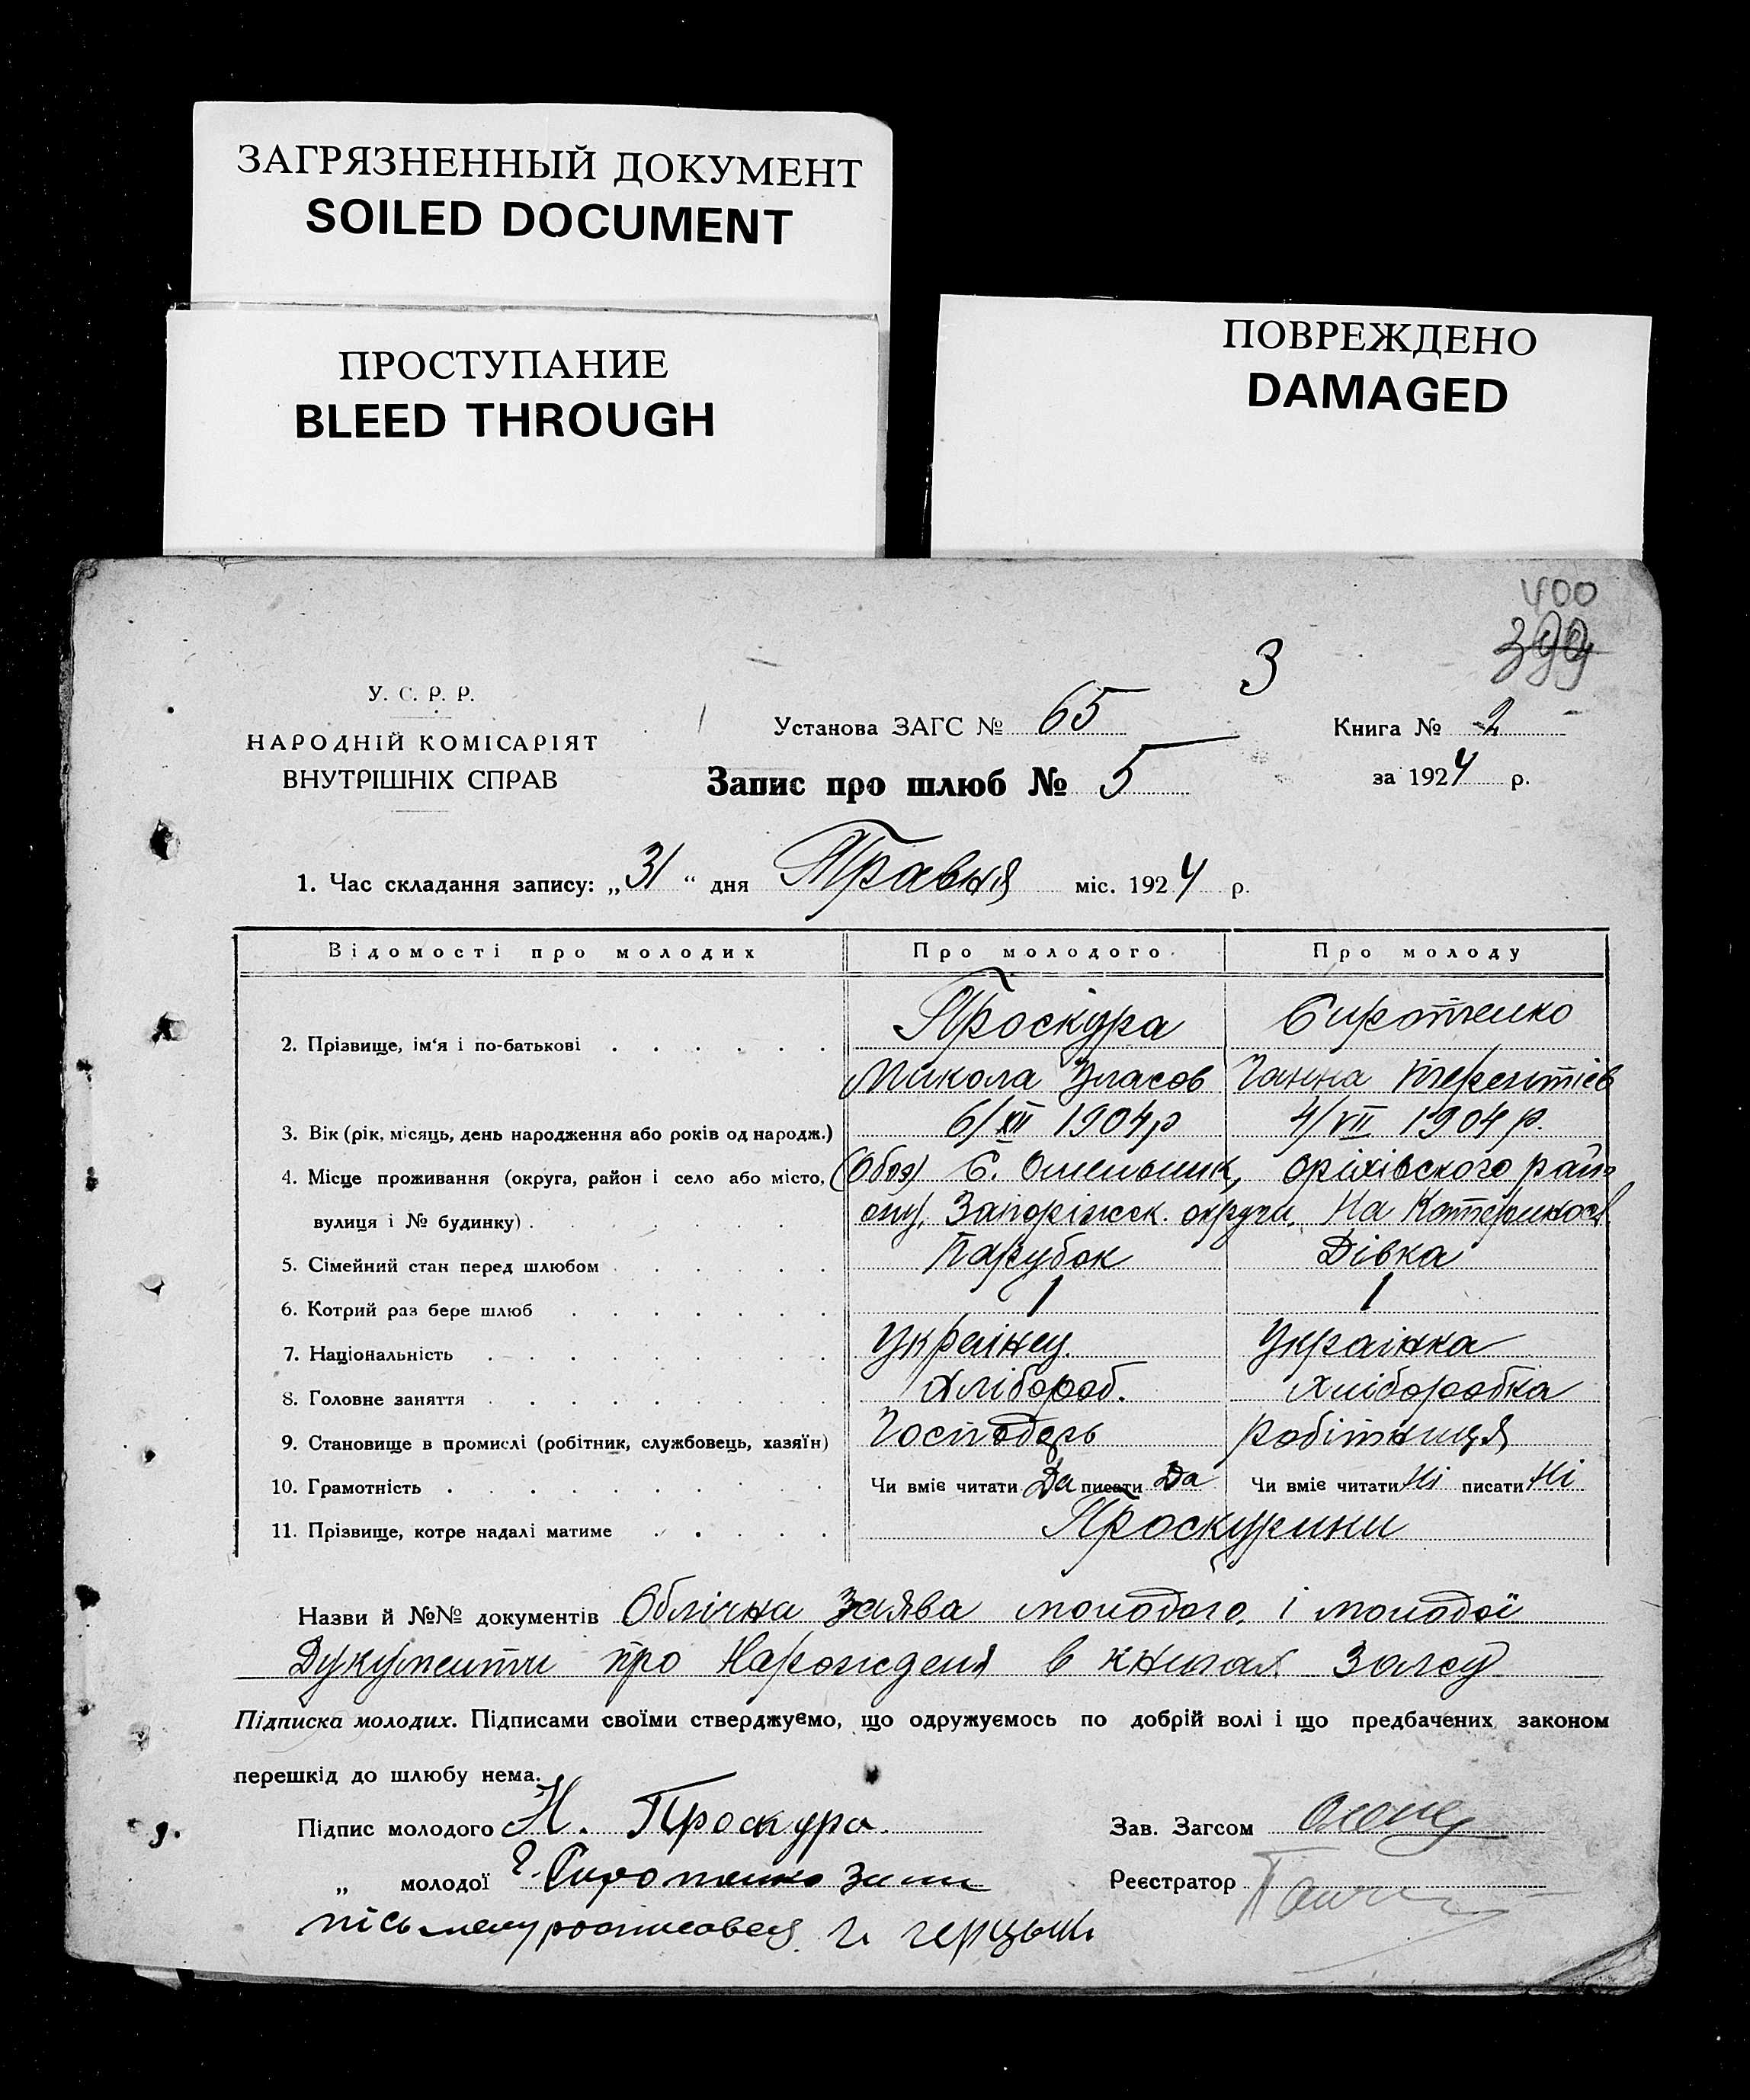 ЗАГРЯЗНЕННЫЙ ДОКУМЕНТ
SOILED DOCUMENT
ПРОСТУПАНИЕ
BLEED THROUGH
ПОВРЕЖДЕНО
DAMAGED
400
399
3
У. С. Р. Р.
НАРОДНІЙ КОМІСАРІЯТ
ВНУТРІШНІХ СПРАВ
Установа ЗАГС № 65
Книга № 2
Запис про шлюб № 5
за 1924 р.
1. Час складання запису: „31“ дня Травня міс. 1924 р.
Відомості про молодих Про молодого Про молоду
2. Прізвище, ім'я і по-батькові Проскура Сиротенко
Микола Уласов Ганна Терентіев
3. Вік (рік, місяць, день народження або років од народж.) 6/XII 1904 р 4/VII 1904 р.
4. Місце проживання (округа, район і село або місто, (Обоє) С. Омельник, Оріхівського рай-
вулиця і № будинку) ону, Запоріжск. округи, На Катериносл.
5. Сімейний стан перед шлюбом Парубок Дівка
6. Котрий раз бере шлюб 1 1
7. Національність Українец. Українка
8. Головне заняття Хлібороб. Хліборобка
9. Становище в промислі (робітник, службовець, хазяїн) Господарь робітниця
10. Грамотність Чи вміє читати Да писати Да Чи вміє читати Ні писати Ні
11. Прізвище, котре надалі матиме Проскурини
Назви й №№ документів Облічна Заява молодого і молодої
Дукументи про Нарожденя в книгах Загсу
Підписка молодих. Підписами своїми стверджуємо, що одружуємось по добрій волі і що предбачених законом
перешкід до шлюбу нема.
Підпис молодого Н. Проскура. Зав. Загсом
„ молодої Г. Сиротенко за не Реєстратор
письмену росписовся